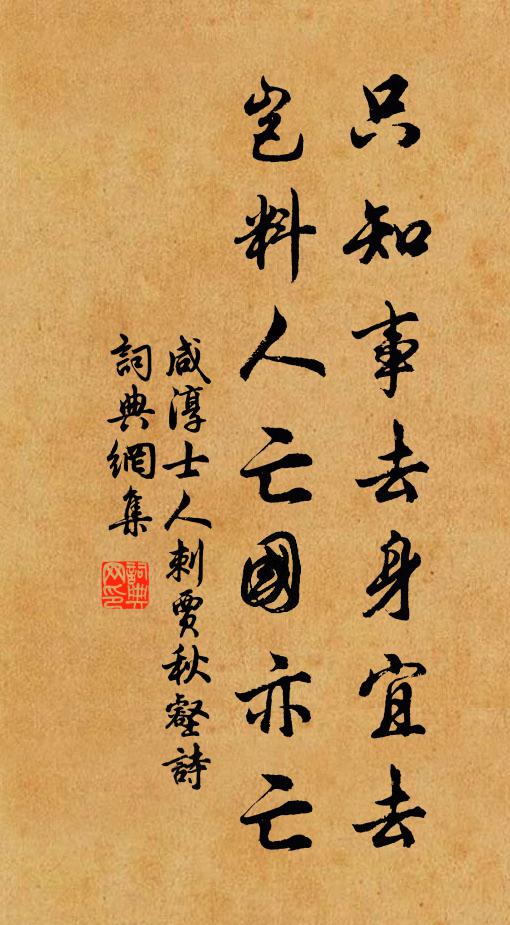 只知事去身宜去
豈料人亡國亦亡
咸淳士人刺賈秋壑詩
詞典網集
詞典網印